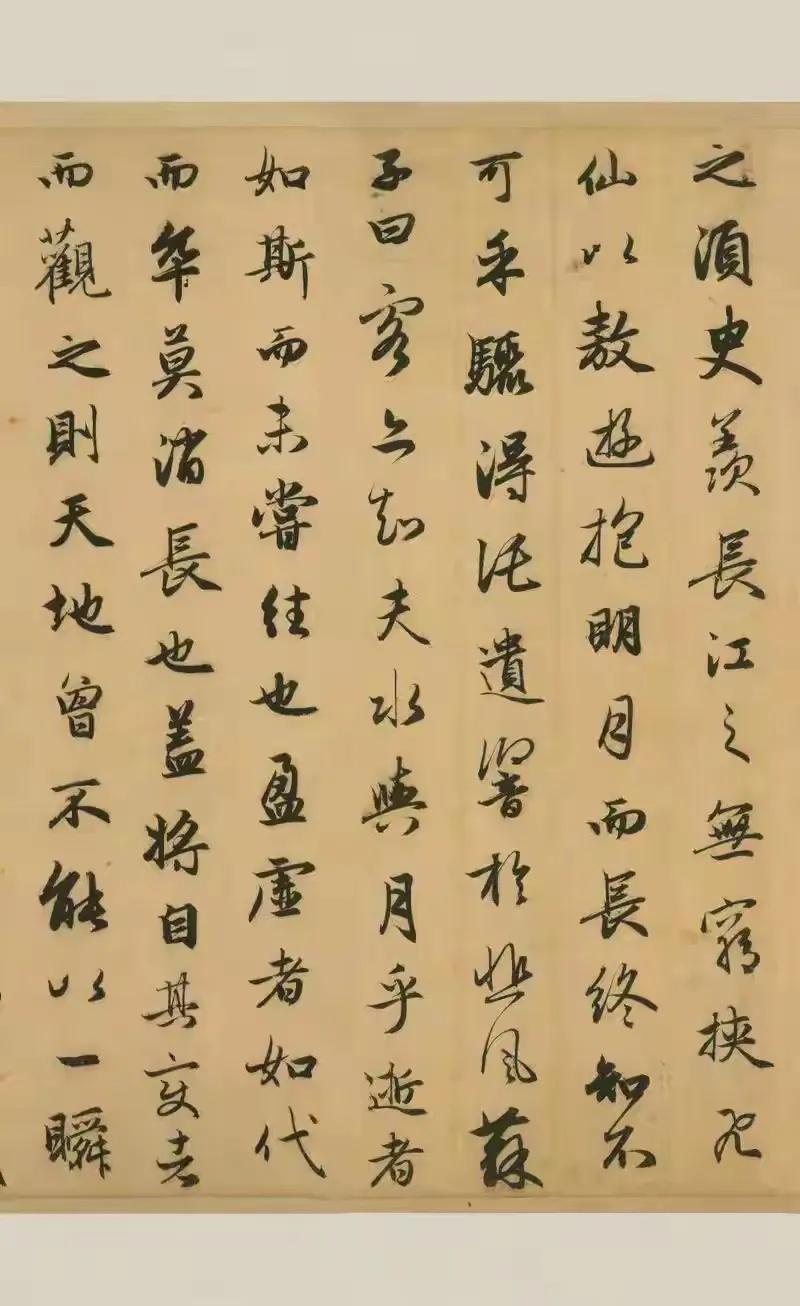 之須臾羨長江之無窮挾飛
仙以敖遊抱明月而長終知不
可乎驟得託遺響於悲風蘇
子曰客亦知夫水與月乎逝者
如斯而未嘗往也盈虛者如代
而卒莫消長也蓋將自其變者
而觀之則天地曾不能以一瞬